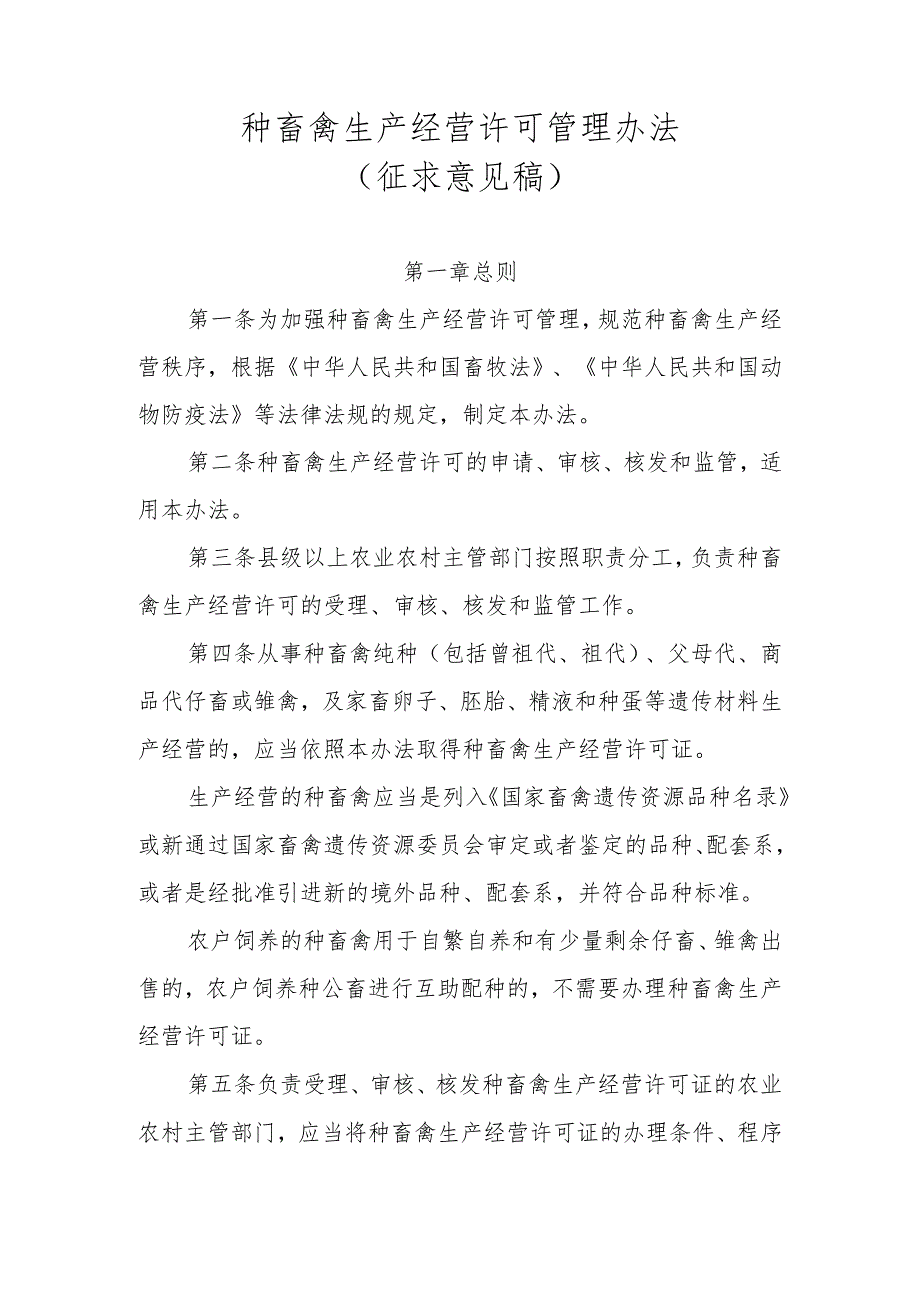 种畜禽生产经营许可管理办法
（征求意见稿）
第一章总则
第一条为加强种畜禽生产经营许可管理，规范种畜禽生产经
营秩序，根据《中华人民共和国畜牧法》、《中华人民共和国动
物防疫法》等法律法规的规定，制定本办法。
第二条种畜禽生产经营许可的申请、审核、核发和监管，适
用本办法。
第三条县级以上农业农村主管部门按照职责分工，负责种畜
禽生产经营许可的受理、审核、核发和监管工作。
第四条从事种畜禽纯种（包括曾祖代、祖代）、父母代、商
品代仔畜或雏禽，及家畜卵子、胚胎、精液和种蛋等遗传材料生
产经营的，应当依照本办法取得种畜禽生产经营许可证。
生产经营的种畜禽应当是列入《国家畜禽遗传资源品种名录》
或新通过国家畜禽遗传资源委员会审定或者鉴定的品种、配套系，
或者是经批准引进新的境外品种、配套系，并符合品种标准。
农户饲养的种畜禽用于自繁自养和有少量剩余仔畜、雏禽出
售的，农户饲养种公畜进行互助配种的，不需要办理种畜禽生产
经营许可证。
第五条负责受理、审核、核发种畜禽生产经营许可证的农业
农村主管部门，应当将种畜禽生产经营许可证的办理条件、程序